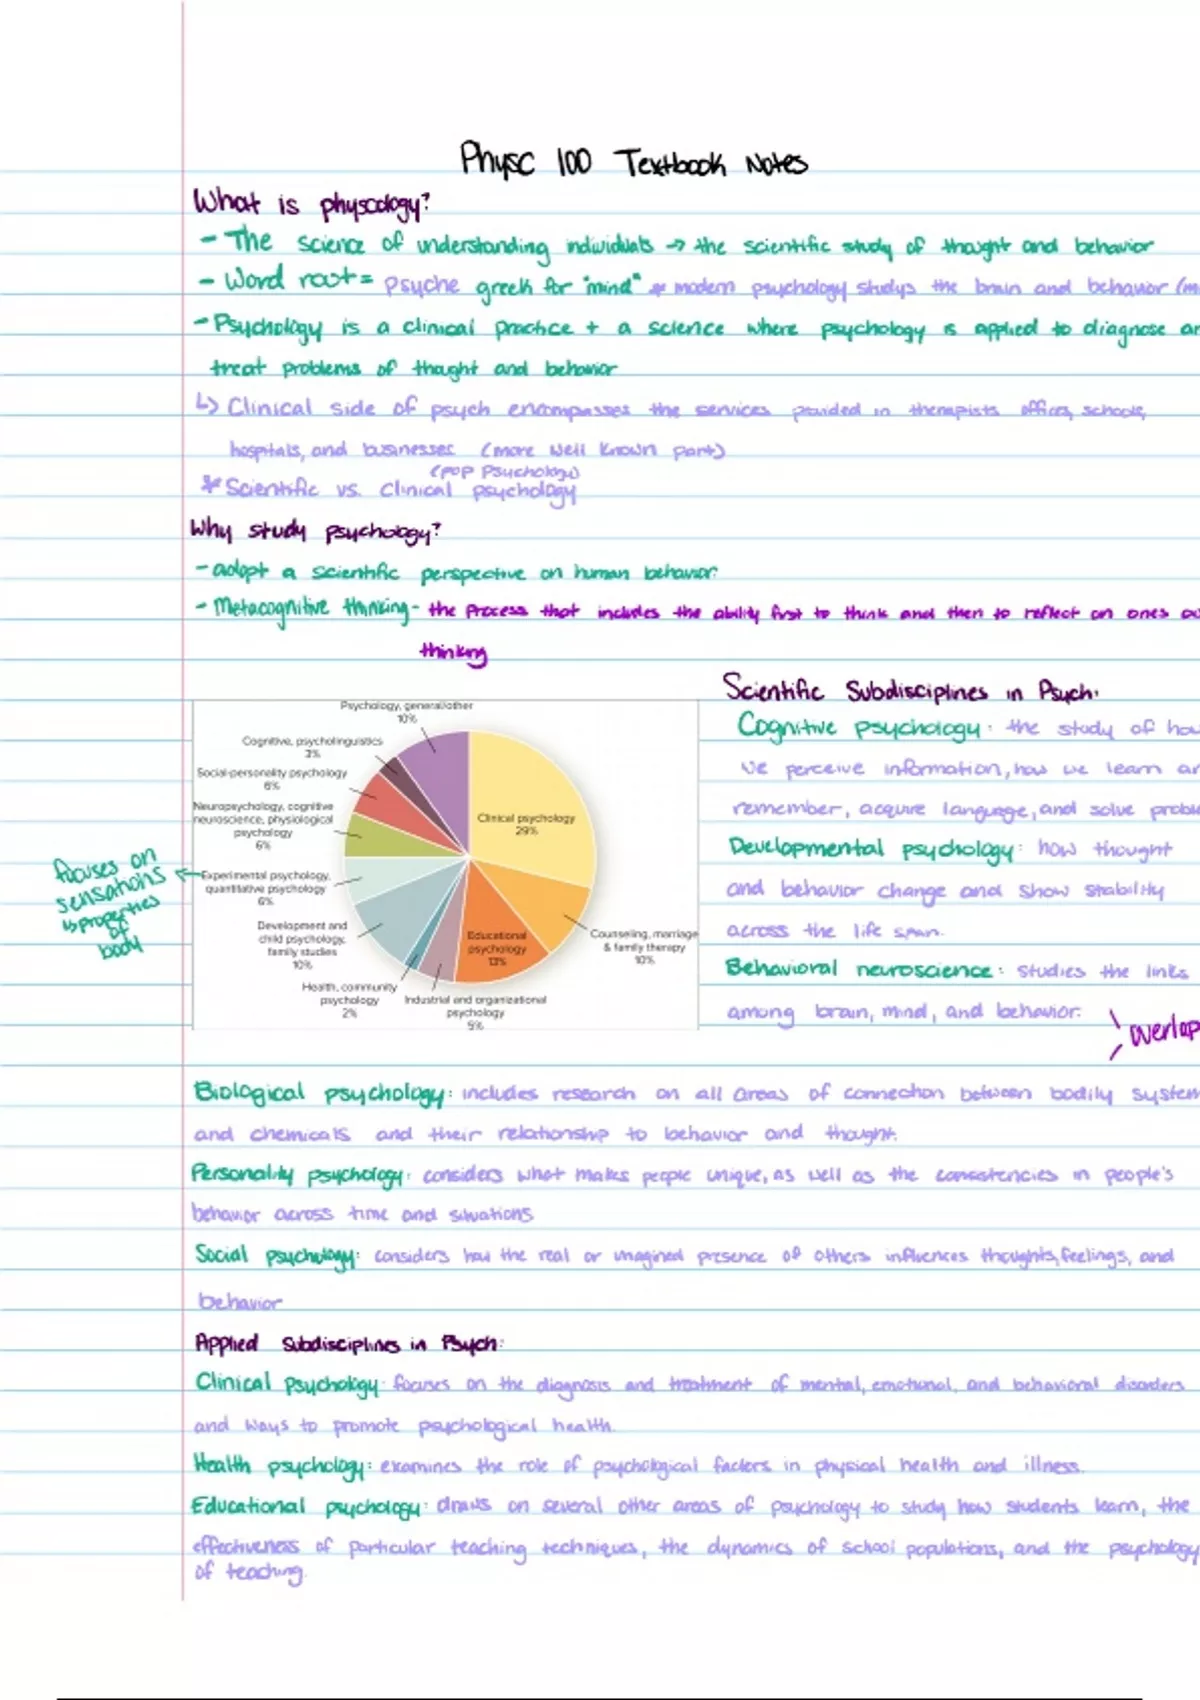 Physc 100 Textbook Notes
What is physcology?
- The science of understanding individuals → the scientific study of thought and behavior
- Word root = psyche greek for "mind" * modern psychology studys the brain and behavior (m
- Psychology is a clinical practice + a science where psychology is applied to diagnose an
treat problems of thought and behavior
↳ Clinical side of psych encompasses the services provided in therapists offices, schools,
hospitals, and businesses (more well known part)
(pop psychology)
* Scientific vs. clinical psychology
Why study psychology?
- adopt a scientific perspective on human behavior.
- Metacognitive thinking - the process that includes the ability first to think and then to reflect on ones
thinking
Psychology, general/other
10%
Cognitive, psycholinguistics
3%
Social-personality psychology
6%
Neuropsychology, cognitive
neuroscience, physiological
psychology
6%
Experimental psychology,
quantitative psychology
6%
Development and
child psychology,
family studies
10%
Health, community
psychology
2%
Industrial and organizational
psychology
5%
Educational
psychology
13%
Counseling, marriage
& family therapy
10%
Clinical psychology
29%
focuses on
sensations
↳ properties
of
body
Scientific Subdisciplines in Psych:
Cognitive psychology: the study of how
we perceive information, how we learn an
remember, acquire language, and solve proble
Developmental psychology: how thought
and behavior change and show stability
across the life span.
Behavioral neuroscience: studies the links
among brain, mind, and behavior.
overlap
Biological psychology: includes research on all areas of connection between bodily system
and chemicals and their relationship to behavior and thought.
Personality psychology: considers what makes people unique, as well as the consistencies in people's
behavior across time and situations
Social psychology: considers how the real or imagined presence of others influences thoughts, feelings, and
behavior
Applied Subdisciplines in Psych:
Clinical psychology: focuses on the diagnosis and treatment of mental, emotional, and behavioral disorders
and ways to promote psychological health.
Health psychology: examines the role of psychological factors in physical health and illness.
Educational psychology: draws on several other areas of psychology to study how students learn, the
effectiveness of particular teaching techniques, the dynamics of school populations, and the psychology
of teaching.